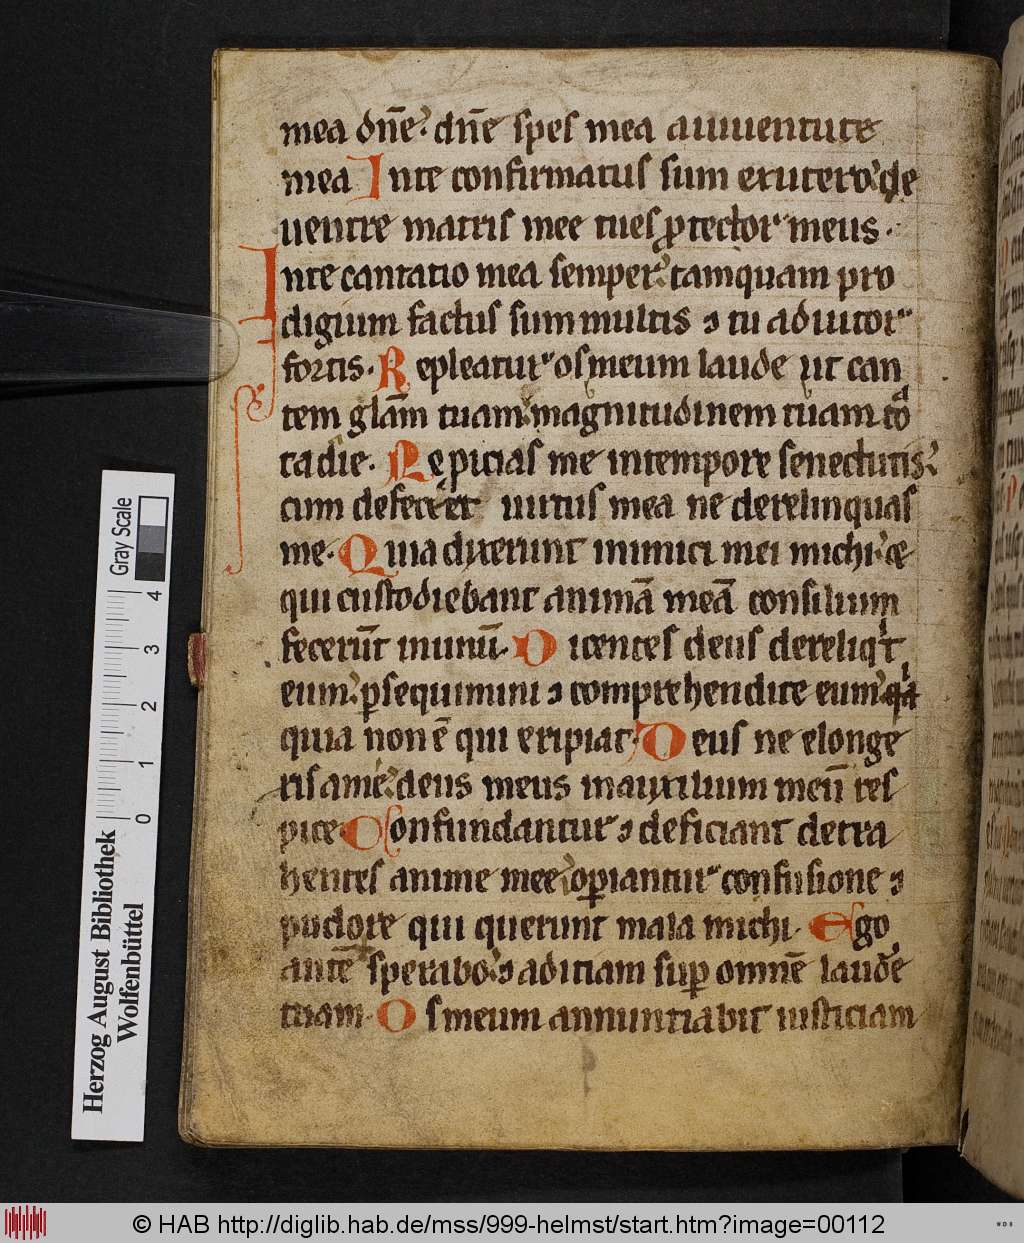 mea dn̄e. dn̄e spes mea a iuuentute
mea In te confirmatus sum ex utero. de
uentre matris mee tu es ꝓtector meus.
In te cantatio mea semper. tamquam pro
digium factus sum multis ⁊ tu adiutor
fortis. Repleatur os meum laude ut can
tem gl̄am tuam. magnitudinem tuam to
ta die. Ne picias me in tempore senectutis.
cum defecerit uirtus mea ne derelinquas
me. Quia dixerunt inimici mei michi. ce
qui custodiebant animā meā consilium
fecerūt in unū. Dicentes deus dereliqͥt
eum. ꝑsequimini ⁊ comprehendite eum. qͥa
quia non ē qui eripiat. Deus ne elonge
ris a me. deus meus in auxilium meū res
pice. Confundantur ⁊ deficiant detra
hentes anime mee. oꝑiantur confusione ⁊
pudore qui querunt mala michi. Ego
aute sperabo. ⁊ adiciam suꝑ omnē laude
tuam. Os meum annuntiabit iusticiam
Gray Scale
4
3
2
1
0
Herzog August Bibliothek
Wolfenbüttel
© HAB http://diglib.hab.de/mss/999-helmst/start.htm?image=00112
WDB